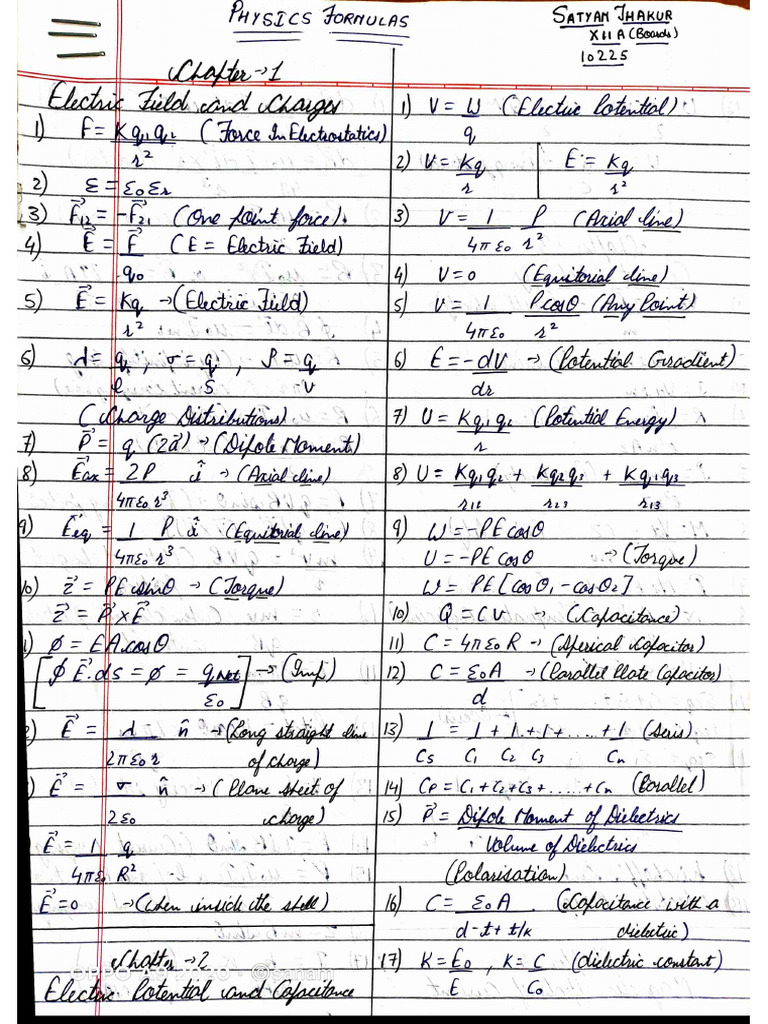 PHYSICS FORMULAS
SATYAM THAKUR
XII A (Boards)
10225
Chapter → 1
Electric Field and Charges
1) F = Kq₁q₂ / r² (Force In Electrostatics)
2) ε = ε₀εr
3) F⃗₁₂ = -F⃗₂₁ (One point force).
4) E⃗ = F⃗ / q₀ (E = Electric Field)
5) E⃗ = Kq / r² → (Electric Field)
6) λ = q / l , σ = q / S , ρ = q / V
(Charge Distributions)
7) P⃗ = q (2a⃗) → (Dipole Moment)
8) E⃗ax = 2P / 4πε₀r³ î → (Axial line)
9) E⃗eq = 1 / 4πε₀ P / r³ î (Equitorial line)
10) τ⃗ = PE sinθ → (Torque)
τ⃗ = P⃗ × E⃗
1) φ = EA cosθ
[∮ E⃗.ds = φ = qNet / ε₀] → (Imp)
2) E⃗ = λ / 2πε₀r n̂ → (Long straight line
of charge)
) E⃗ = σ / 2ε₀ n̂ → (Plane sheet of
charge)
E⃗ = 1 / 4πε₀ q / R²
E⃗ = 0 → (when inside the shell)
Chapter → 2
Electric Potential and Capacitance
1) V = W / q (Electric Potential)
2) V = Kq / r | E = Kq / r²
3) V = 1 / 4πε₀ P / r² (Axial line)
4) V = 0 (Equitorial line)
5) V = 1 / 4πε₀ P cosθ / r² (Any Point)
6) E = -dV / dr → (Potential Gradient)
7) U = Kq₁q₂ / r (Potential Energy)
8) U = Kq₁q₂ / r₁₂ + Kq₂q₃ / r₂₃ + Kq₁q₃ / r₁₃
9) W = -PE cosθ
U = -PE cosθ → (Torque)
W = PE [cosθ₁ - cosθ₂]
10) Q = CV → (Capacitance)
11) C = 4πε₀R → (Sperical Capacitor)
12) C = ε₀A / d → (Parallel Plate Capacitor)
13) 1 / Cs = 1 / C₁ + 1 / C₂ + 1 / C₃ + ..... + 1 / Cn (Seris)
14) Cp = C₁ + C₂ + C₃ + ..... + Cn (Parallel)
15) P⃗ = Dipole Moment of Dielectrics / Volume of Dielectrics
(Polarisation)
16) C = ε₀A / d - t + t/k (Capacitance with a
dielectric)
17) K = E₀ / E , K = C / C₀ (dielectric constant)